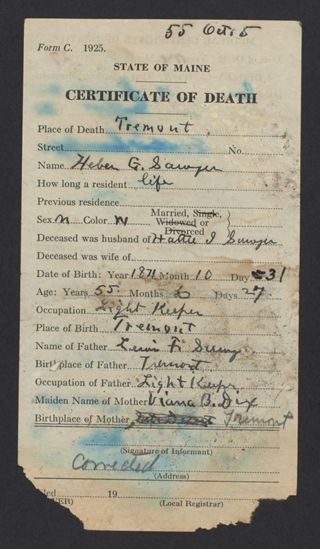 55 Oct 5
Form C. 1925.
STATE OF MAINE
CERTIFICATE OF DEATH
Place of Death Tremont
Street No.
Name Heber G. Sawyer
How long a resident life
Previous residence
Sex M Color W Married, Single, Widowed or Divorced }
Deceased was husband of Hattie I Sawyer
Deceased was wife of
Date of Birth: Year 1871 Month 10 Day 31
Age: Years 55 Months 6 Days 27
Occupation Light Keeper
Place of Birth Tremont
Name of Father Lewis F. Sawyer
Birthplace of Father Tremont
Occupation of Father Light Keeper
Maiden Name of Mother Viana B. Dix
Birthplace of Mother Tremont
(Signature of Informant)
Corrected
(Address)
19
(Local Registrar)